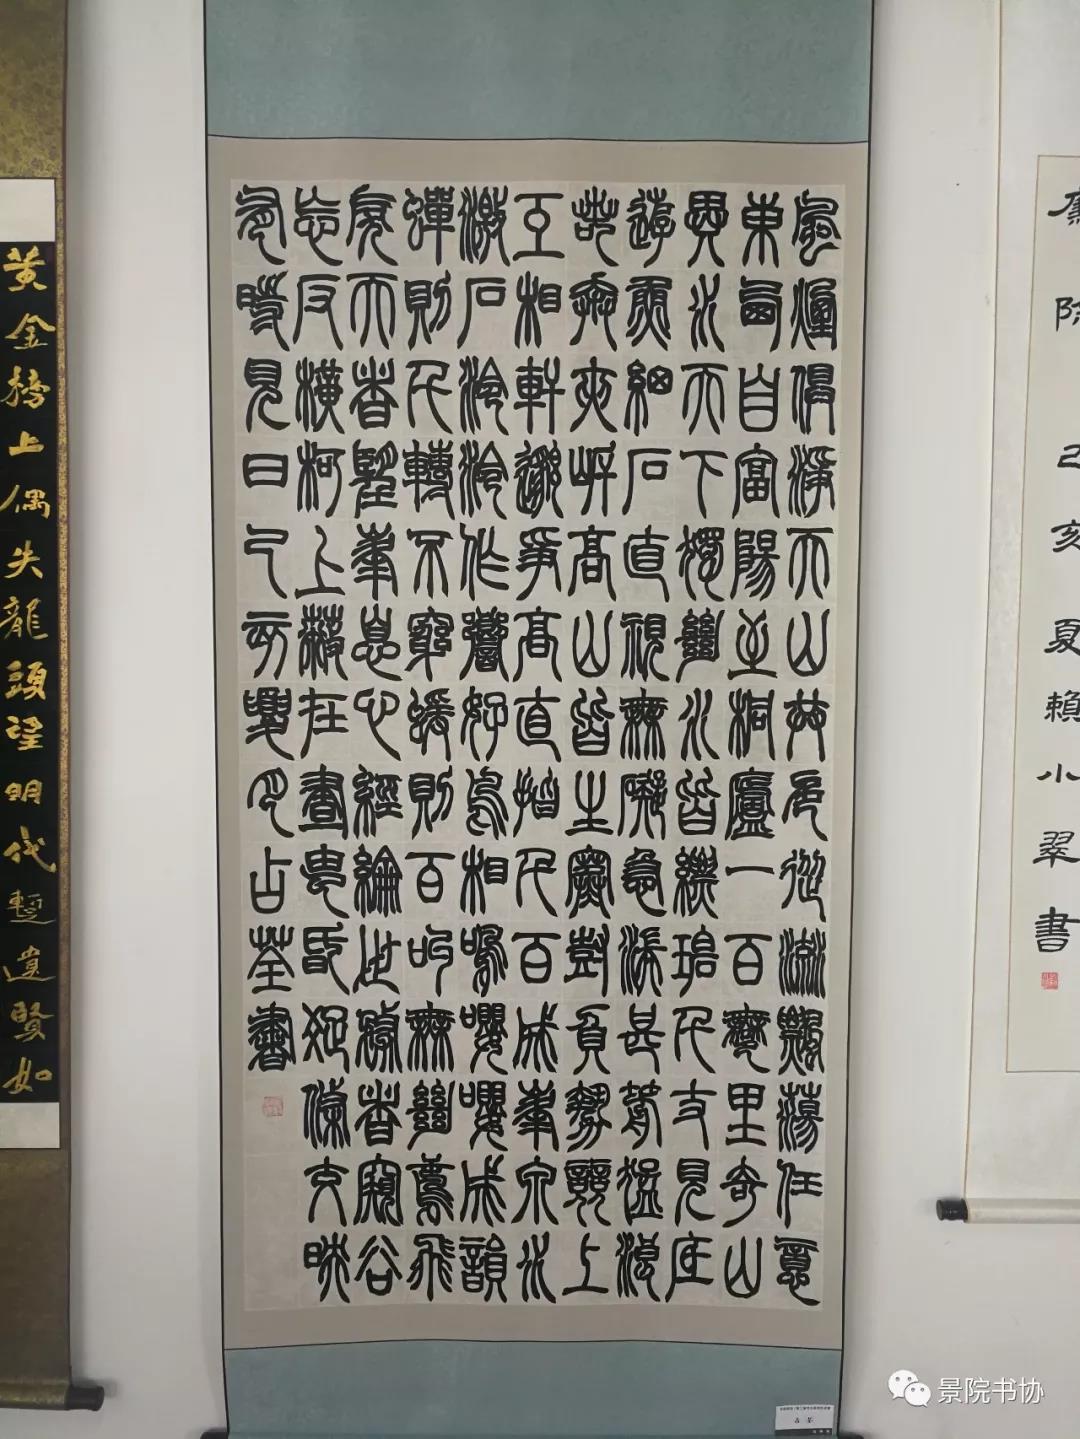 廉
己亥夏賴小翠書
風煙俱淨天山共色從流飄蕩任意
東西自富陽至桐廬一百許里奇山
異水天下獨絕水皆縹碧千丈見底
游魚細石直視無礙急湍甚箭猛浪
若奔夾岸高山皆生寒樹負勢競上
互相軒邈爭高直指千百成峯泉水
激石泠泠作響好鳥相鳴嚶嚶成韻
蟬則千轉不窮猨則百叫無絕鳶飛
戾天者望峯息心經綸世務者窺谷
忘反橫柯上蔽在晝猶昏疏條交映
有時見日己亥夏月占荃書
黃金榜上偶失龍頭望明代暫遺賢如
占荃
景院书协